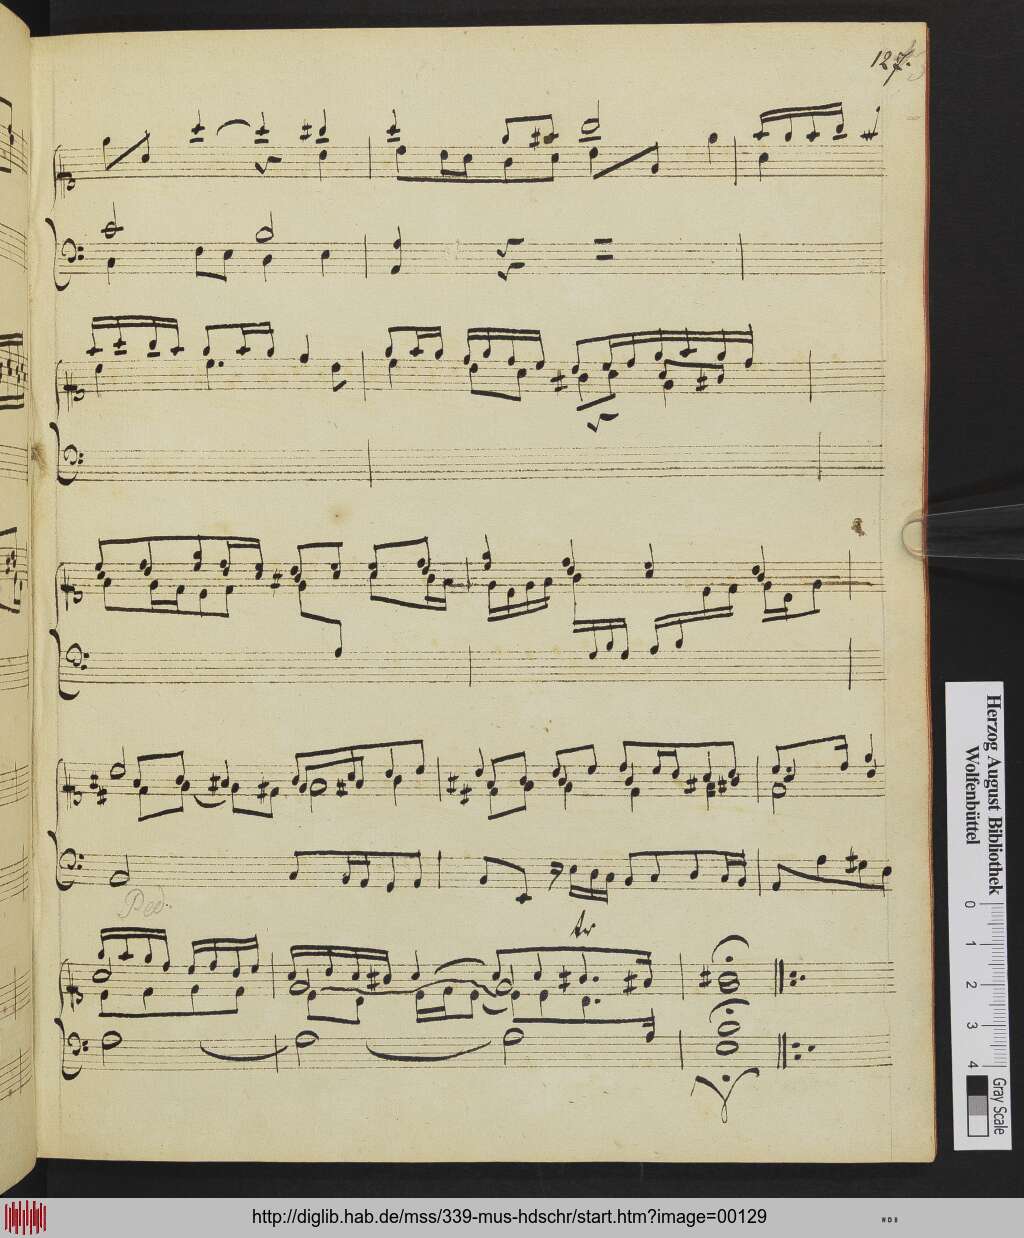 127.
Ped.
tr
Herzog August Bibliothek
Wolfenbüttel
0 1 2 3 4
Gray Scale
http://diglib.hab.de/mss/339-mus-hdschr/start.htm?image=00129